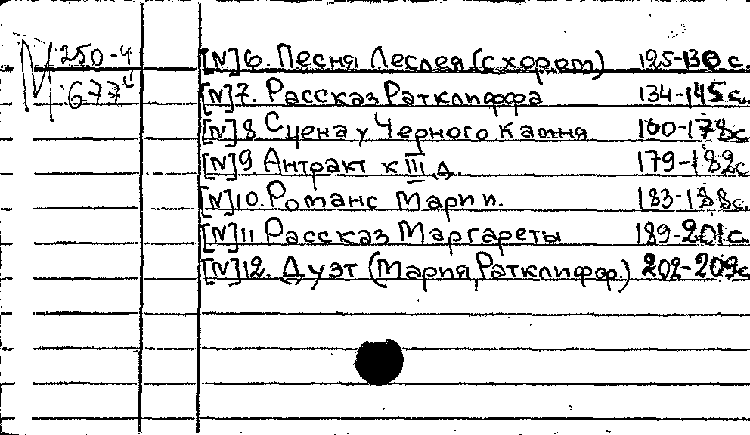 М 250-4
677и
[N]6. Песня Леслея (с хором) 125-130 с.
[N]7. Рассказ Ратклиффа 134-145 с.
[N]8 Сцена у Черного камня 160-178с
[N]9. Антракт к III д. 179-182с
[N]10. Романс Марии. 183-188с.
[N]11 Рассказ Маргареты 189-201с.
[N]12. Дуэт (Мария, Ратклифф.) 202-209с